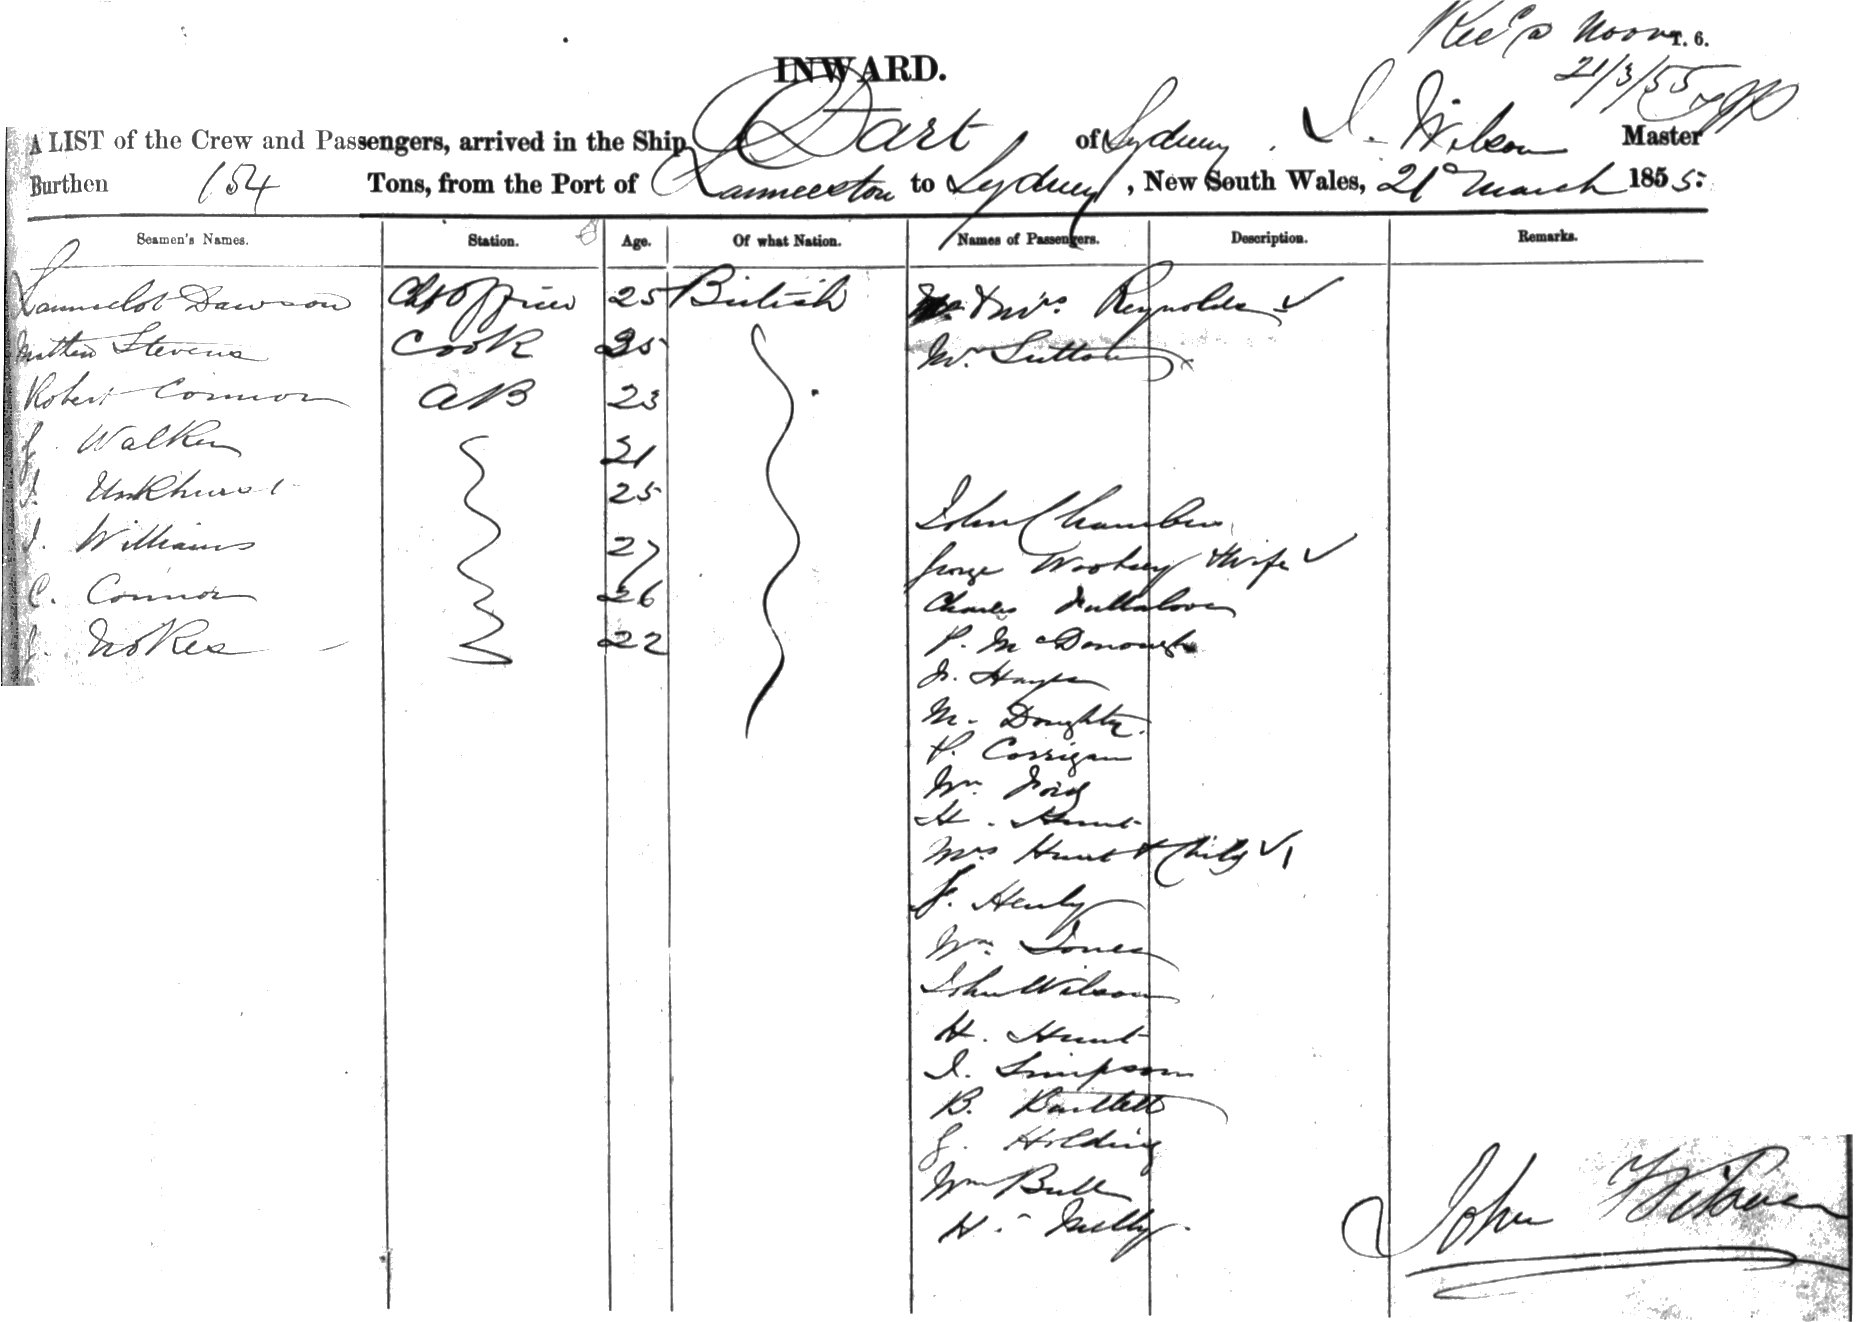 Rec'd Noon T. 6.
21/3/55
INWARD.
A LIST of the Crew and Passengers, arrived in the Ship Dart of Sydney. J. Wilson Master
Burthen 154 Tons, from the Port of Launceston to Sydney, New South Wales, 21 March 1855.
Seamen's Names. Station. Age. Of what Nation. Names of Passengers. Description. Remarks.
Launcelot Dawson Chf Officer 25 British & Mrs. Reynolds ✓
Matthew Stevens Cook 35 Mr. Sutton
Robert Connor AB 23
J. Walker 21
Unkhurst 25
John Chambers
J. Williams 27
George Woolsey & Wife ✓
C. Connor 26
Charles
J. Nokes 22
P. McDonough
J. Hayes
M. Doughty.
P. Corrigan
Wm. Ford
H. Hunt
Mrs Hunt & Child ✓ 1
J. Henly
Wm. Jones
John Wilson
H. Hunt
J. Simpson
B. Bartlett
J. Holding
Wm Bull
H.
John Wilson